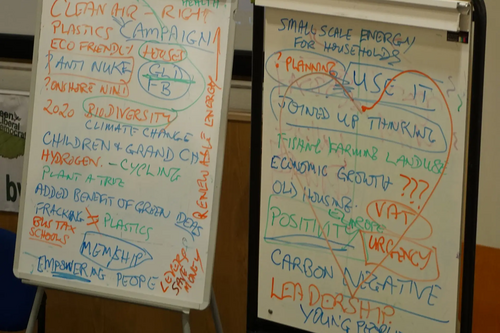 HEALTH
CLEAN AIR - RIGHT
PLASTICS CAMPAIGN
ECO FRIENDLY HOUSES
? ANTI NUKE
FB
? ONSHORE WIND
2020 BIODIVERSITY
CLIMATE CHANGE
CHILDREN & GRAND CH
HYDROGEN. - CYCLING
PLANT A TREE
ADDED BENEFIT OF GREEN
FRACKING PLASTICS
BUS TAX
SCHOOLS
MEMSHIP
EMPOWERING PEOPLE
RENEWABLE ENERGY
SMALL SCALE ENERGY
FOR HOUSEHOLDS
? PLANNING USE IT
JOINED UP THINKING
FISHING FARMING LANDUSE
ECONOMIC GROWTH ???
OLD HOUSING.
VAT
POSITIVITY
EUROPE
URGENCY
CARBON NEGATIVE
LEADERSHIP
YOUNG PEOPLE